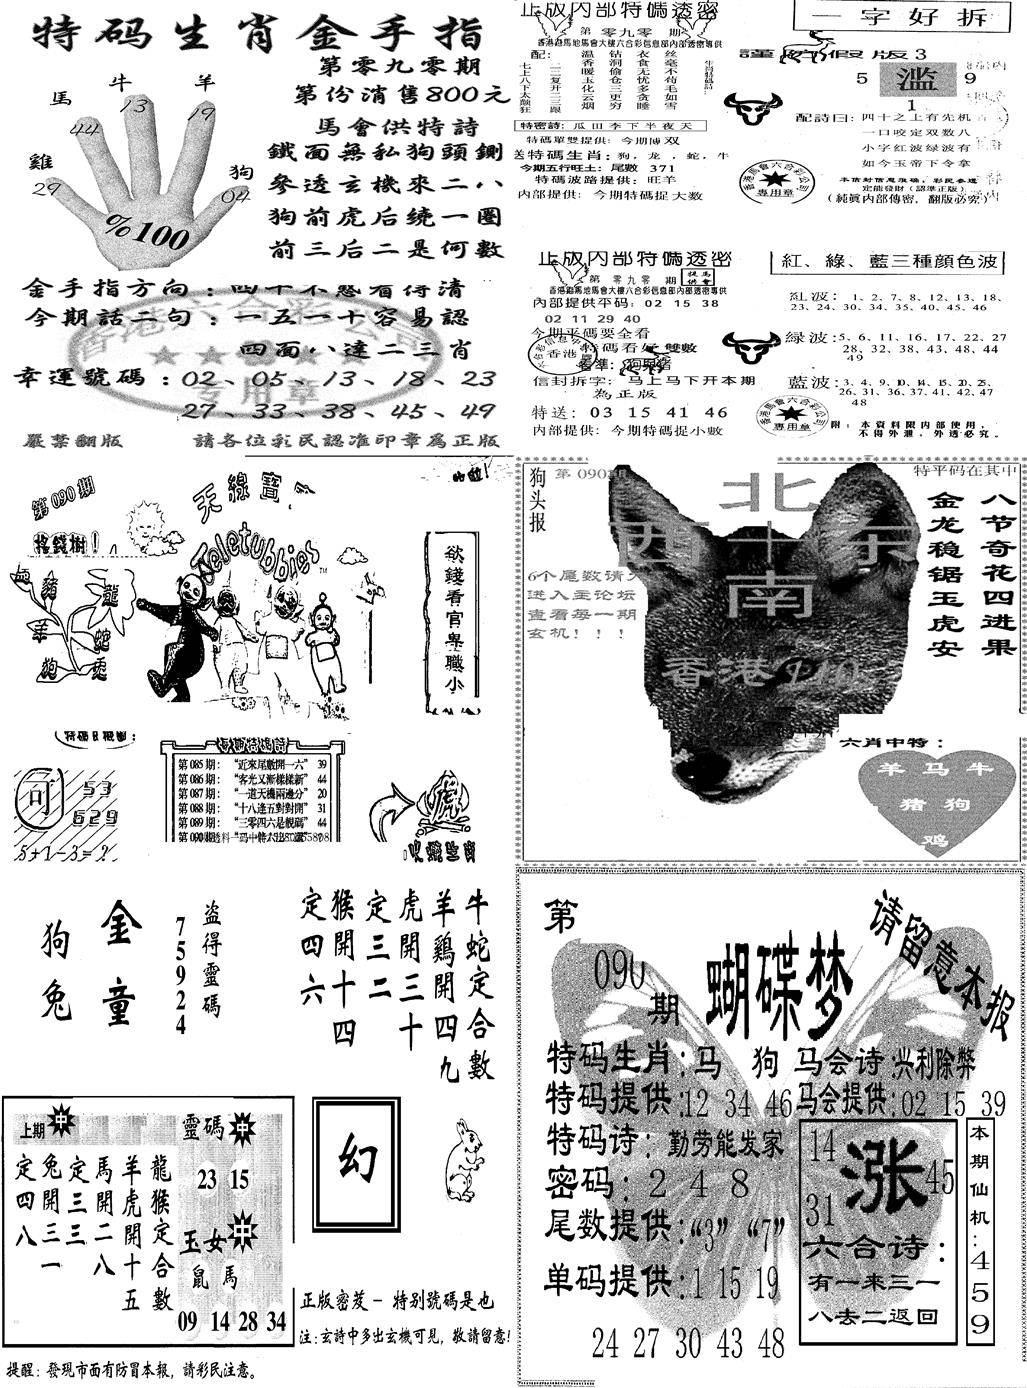 特码生肖金手指
第零九零期
第份消售800元
馬會供特詩
鐵面無私狗頭鍘
參透玄機來二八
狗前虎后繞一圈
前三后二是何數
牛
13
羊
19
馬
44
雞
29
狗
04
%100
金手指方向:四十不惑看得清
今期話二句:一五一十容易認
四面八達二三肖
幸運號碼:02、05、13、18、23
27、33、38、45、49
专用章
嚴禁翻版
請各位彩民認准印章為正版
正版内部特碼透密
第零九零期
香港跑馬地馬會大樓六合彩信息部內部專供
配:
七上八下太颠狂
二三复开二三跟
温香暖玉化云烟
钻洞偷仓三更穷
衣食无忧多贪睡
丝毫不苟毛如雪
特密詩:瓜田李下半夜天
特碼單雙提供:今期博双
送特碼生肖:狗,龙,蛇,牛
今期五行旺土:尾數371
特碼波路提供:旺羊
内部提供:今期特碼捉大数
一字好拆
謹防假版3
5
滥
9
1
配詩曰:四十之上有先机
一口咬定双数八
小字红波绿波有
如今玉帝下令拿
本信封信息准确,彩民参透
定能發財(認準正版)
(純眞內部傳密,翻版必究)
專用章
正版内部特碼透密
第零九零期
提供 馬會
香港跑馬地馬會大樓六合彩信息部內部專供
内部提供平码:02 15 38
02 11 29 40
今期平碼要全看
特碼看好雙數
香港
信封拆字:马上马下开本期
為正版
特送:03 15 41 46
内部提供:今期特碼捉小數
紅、綠、藍三種顏色波
紅波:1、2、7、8、12、13、18、
23、24、30、34、35、40、45、46
绿波:5、6、11、16、17、22、27
28、32、38、43、48、44
49
藍波:3、4、9、10、14、15、20、25、
26、31、36、37、41、42、47
48
附:本資料限內部使用,
不得外泄,外透必究。
專用章
第090期
搖錢樹!
天線寶
Teletubbies
豬
龍
羊
蛇
狗
兎
欲錢看官卑職小
可
53
629
5+1-3=2
第085期:“近來尾數開一六”39
第086期:“客光又漸樣樣新”44
第087期:“一道天機兩邊分”20
第088期:“十八逢五對對開”31
第089期:“三零四六是靚碼”44
虎
狗头报
第090期
特平码在其中
北
西十东
南
6个尾数请先
进入主论坛
查看每一期
玄机!!!
香港
八节奇花四进果
金龙稳锯玉虎安
六肖中特:
羊马牛
猪狗
鸡
狗兔
金童
盜得靈碼
75924
牛蛇定合數
羊鷄開四九
虎開三十
定三二
猴開十四
定四六
上期
中
靈碼
中
23 15
龍猴定合數
羊虎開十五
馬開二八
定三三
兔開三一
定四八
玉女
中
鼠馬
09 14 28 34
幻
正版密芨一特别號碼是也
注:玄詩中多出玄機可見,敬請留意!
提醒:發現市面有防冒本報,請彩民注意。
第
090
期
蝴蝶梦
请留意本报
特码生肖:马 狗
马会诗:兴利除弊
特码提供:12 34 46
马会提供:02 15 39
特码诗:勤劳能发家
密码:2 4 8
尾数提供:“3” “7”
单码提供:1 15 19
24 27 30 43 48
14
涨
45
31
六合诗:
有一来三一
八去二返回
本期仙机:459